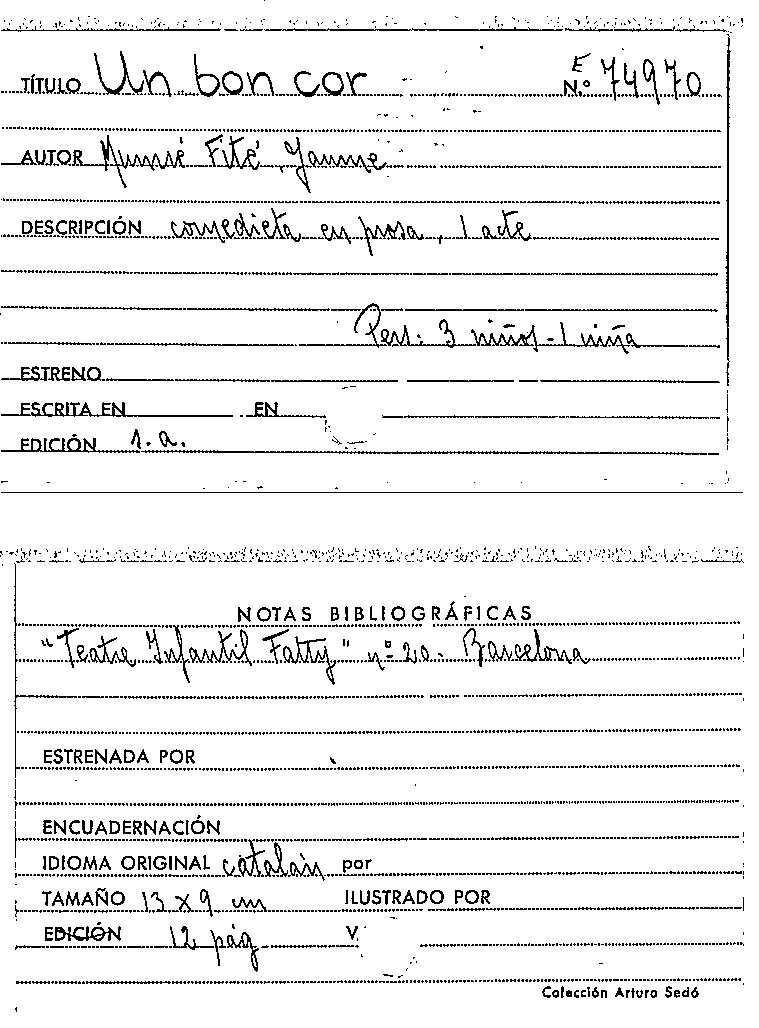 TÍTULO Un bon cor E N.º 74970
AUTOR Munné Fité, Jaume
DESCRIPCIÓN comedieta en prosa, 1 acte
Pers: 3 niños - 1 niña
ESTRENO
ESCRITA EN EN
EDICIÓN s.a.
NOTAS BIBLIOGRÁFICAS
"Teatre Infantil Fatty" nº 20. Barcelona
ESTRENADA POR
ENCUADERNACIÓN
IDIOMA ORIGINAL catalán por
TAMAÑO 13 x 9 cm ILUSTRADO POR
EDICIÓN 12 pág V.
Colección Arturo Sedó